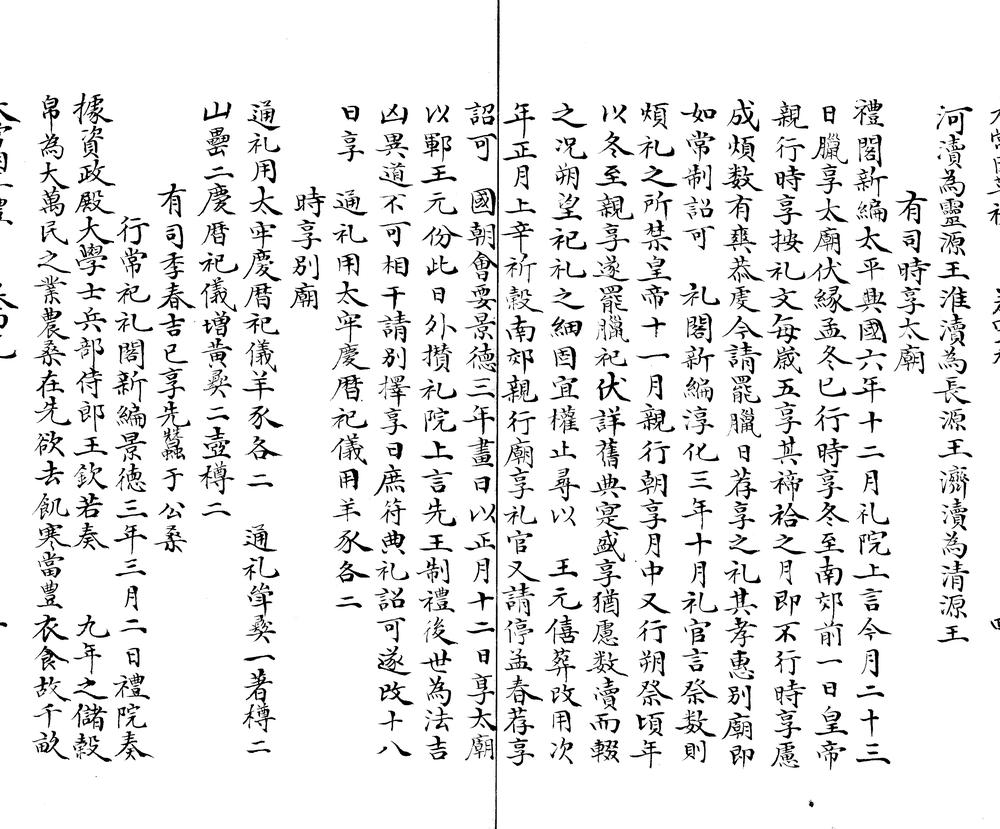 河瀆為靈源王淮瀆為長源王濟瀆為清源王
有司時享太廟
禮閣新編太平興國六年十二月礼院上言今月二十三
日臘享太廟伏縁孟冬已行時享冬至南郊前一日皇帝
親行時享按礼文每嵗五享其禘祫之月即不行時享慮
成煩数有爽恭虔今請罷臘日荐享之礼其孝惠别廟即
如常制詔可 礼閣新編淳化三年十月礼官言祭数則
煩礼之所禁皇帝十一月親行朝享月中又行朔祭頃年
以冬至親享遂罷臘祀伏詳舊典寔盛享猶慮数瀆而輟
之况朔望祀礼之細固宜權止尋以 王元僖葬改用次
年正月上辛祈穀南郊親行廟享礼官又請停孟春荐享
詔可 國朝會要景德三年畫日以正月十二日享太廟
以鄆王元份此日外攅礼院上言先王制禮後世為法吉
凶異道不可相干請别擇享日庶符典礼詔可遂改十八
日享 通礼用太牢慶暦祀儀用羊豕各二
時享别廟
通礼用太牢慶暦祀儀羊豕各二 通礼斝彝一著樽二
山罍二慶暦祀儀增黄彝二壺樽二
有司季春吉巳享先蠶于公桑
行常祀礼閣新編景德三年三月二日禮院奏
據資政殿大學士兵部侍郎王欽若奏 九年之儲榖
帛為大萬民之業農桑在先欲去飢寒當豊衣食故千畝